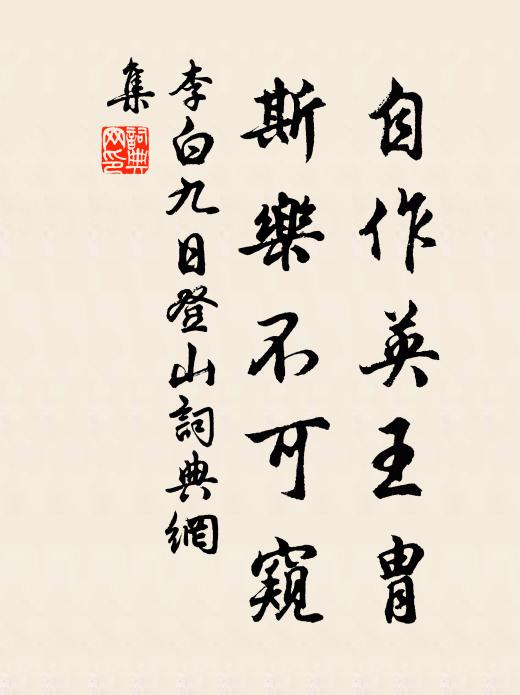 自作英王胄
斯樂不可窺
李白九日登山詞典網
集
詞典网印